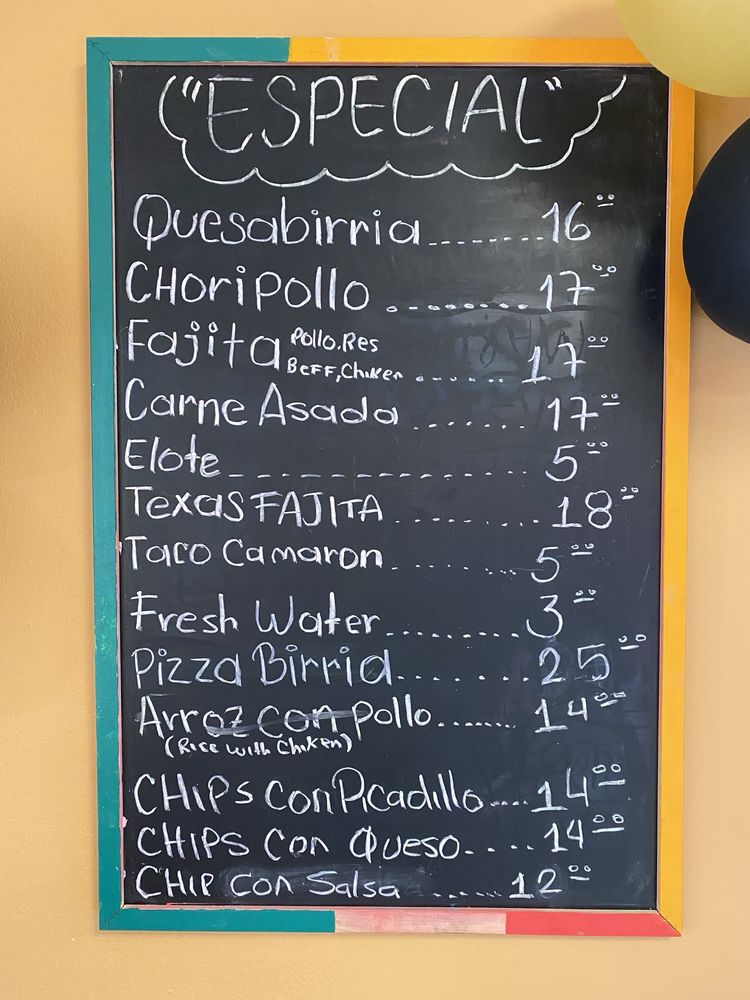 "ESPECIAL"
Quesabirria ........ 16 00
CHoripollo ........ 17 00
Fajita Pollo.Res
BeFF, Chiken ....... 17 00
Carne Asada ....... 17 00
Elote .............. 5 00
Texas FAJITA ......... 18 00
Taco Camaron ......... 5 00
Fresh Water ......... 3 00
Pizza Birria ....... 25 00
Arroz con pollo ...... 14 00
(Rice with Chiken)
CHIPS Con Picadillo .... 14 00
CHIPS Con Queso .... 14 00
CHIP con Salsa ....... 12 00